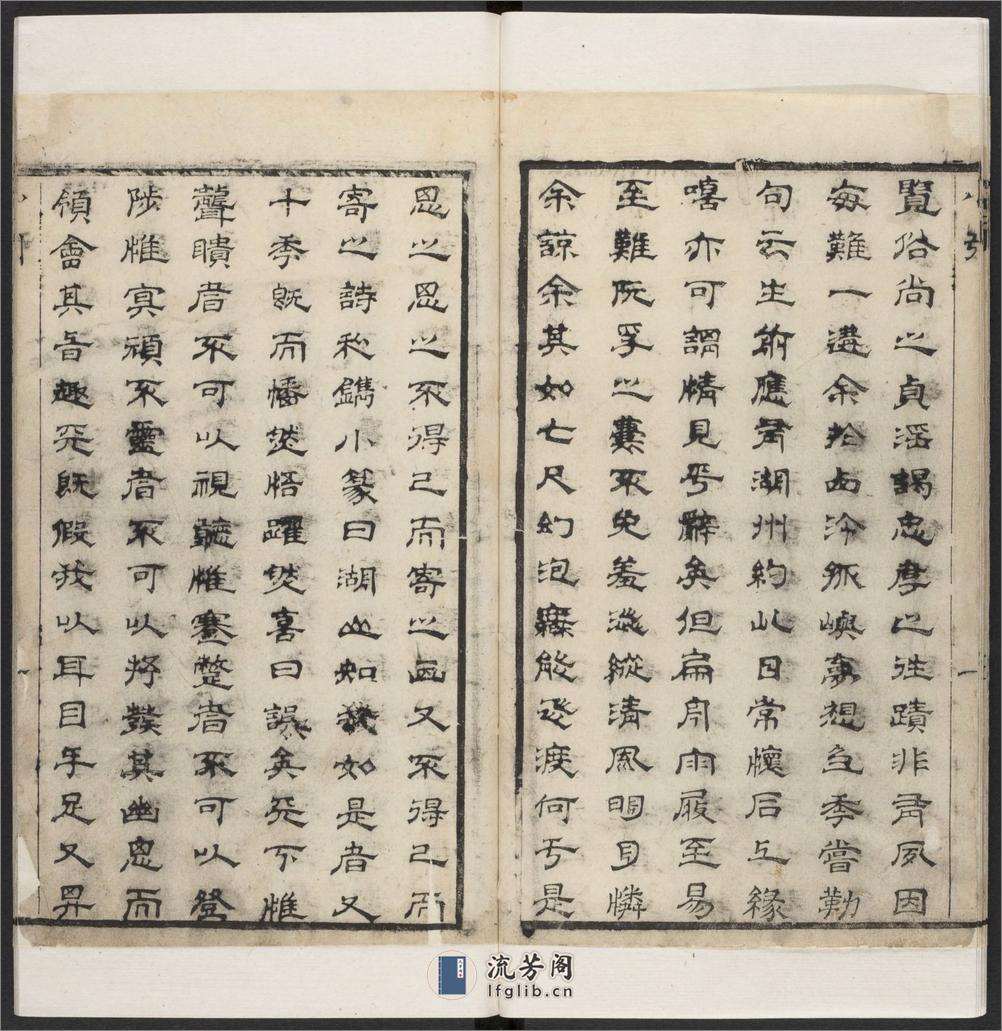 覽俗尚之貞淫謁忠孝之往蹟非有夙因
每難一遘余於西泠孤嶼夢想多季嘗勒
句云生前應有湖州約此日常懷后土緣
嘻亦可謂情見乎辭矣但扁舟雨屐至易
至難阮孚之囊不免羞澁縱清風明月憐
余諒余其如七尺幻泡無能飛渡何于是
思之思之不得已而寄之画又不得已而
寄之詩私鐫小篆曰湖山知我如是者又
十季既而幡然悟躍然喜曰誤矣天下惟
聾聵者不可以視聽惟蹇蹩者不可以登
陟惟冥頑不靈者不可以抒發其幽思而
領會其旨趣天既假我以耳目手足又畀
小引
一
流芳阁
lfglib.cn